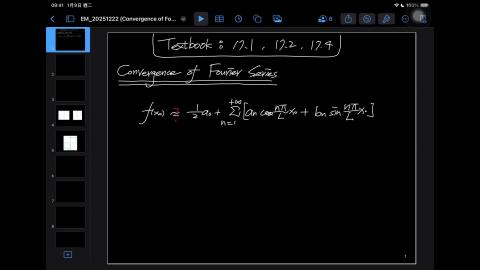 09:41 1月9日 週二
85%
EM_20251222 (Convergence of Fo...
8
Textbook : 17.1 , 17.2 , 17.4
Convergence of Fourier Series
f(x₀) ≟ 1/2 a₀ + Σ_{n=1}^{+∞} [an cos nπ/L x₀ + bn sin nπ/L x₀]
1
2
3
4
5
6
7
8
1